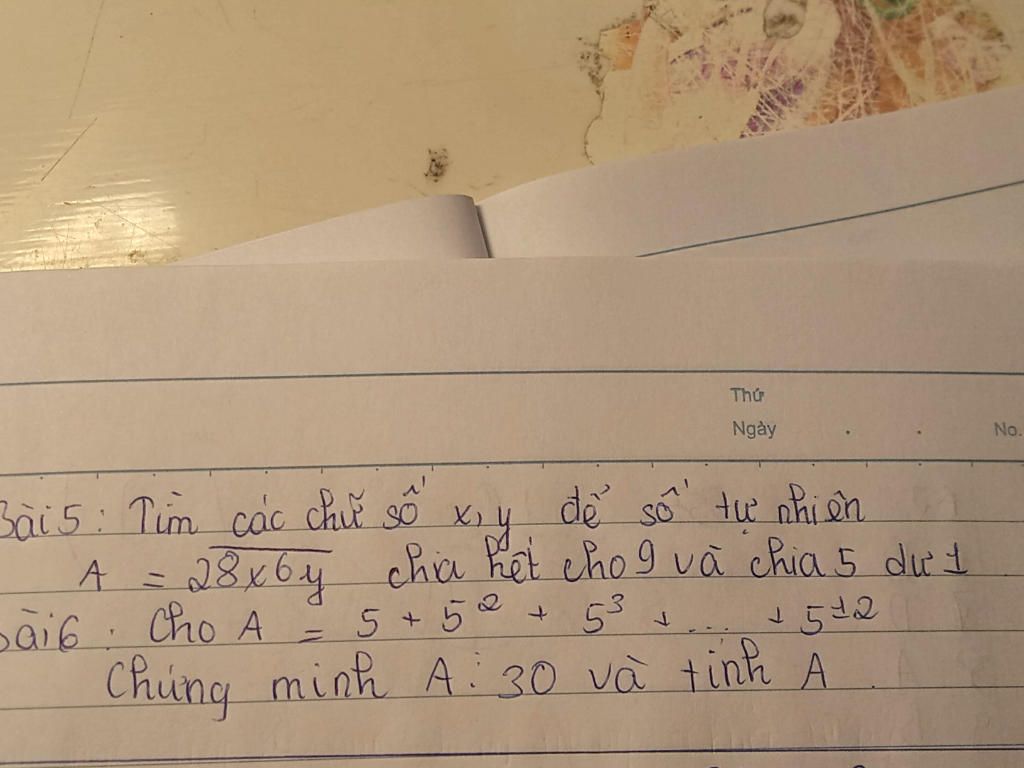 Thứ
Ngày
No.
Bài 5: Tìm các chữ số x, y để số tự nhiên
A = 28x6y chia hết cho 9 và chia 5 dư 1
Bài 6. Cho A = 5 + 5² + 5³ + ... + 5¹²
Chứng minh A ⋮ 30 và tính A.